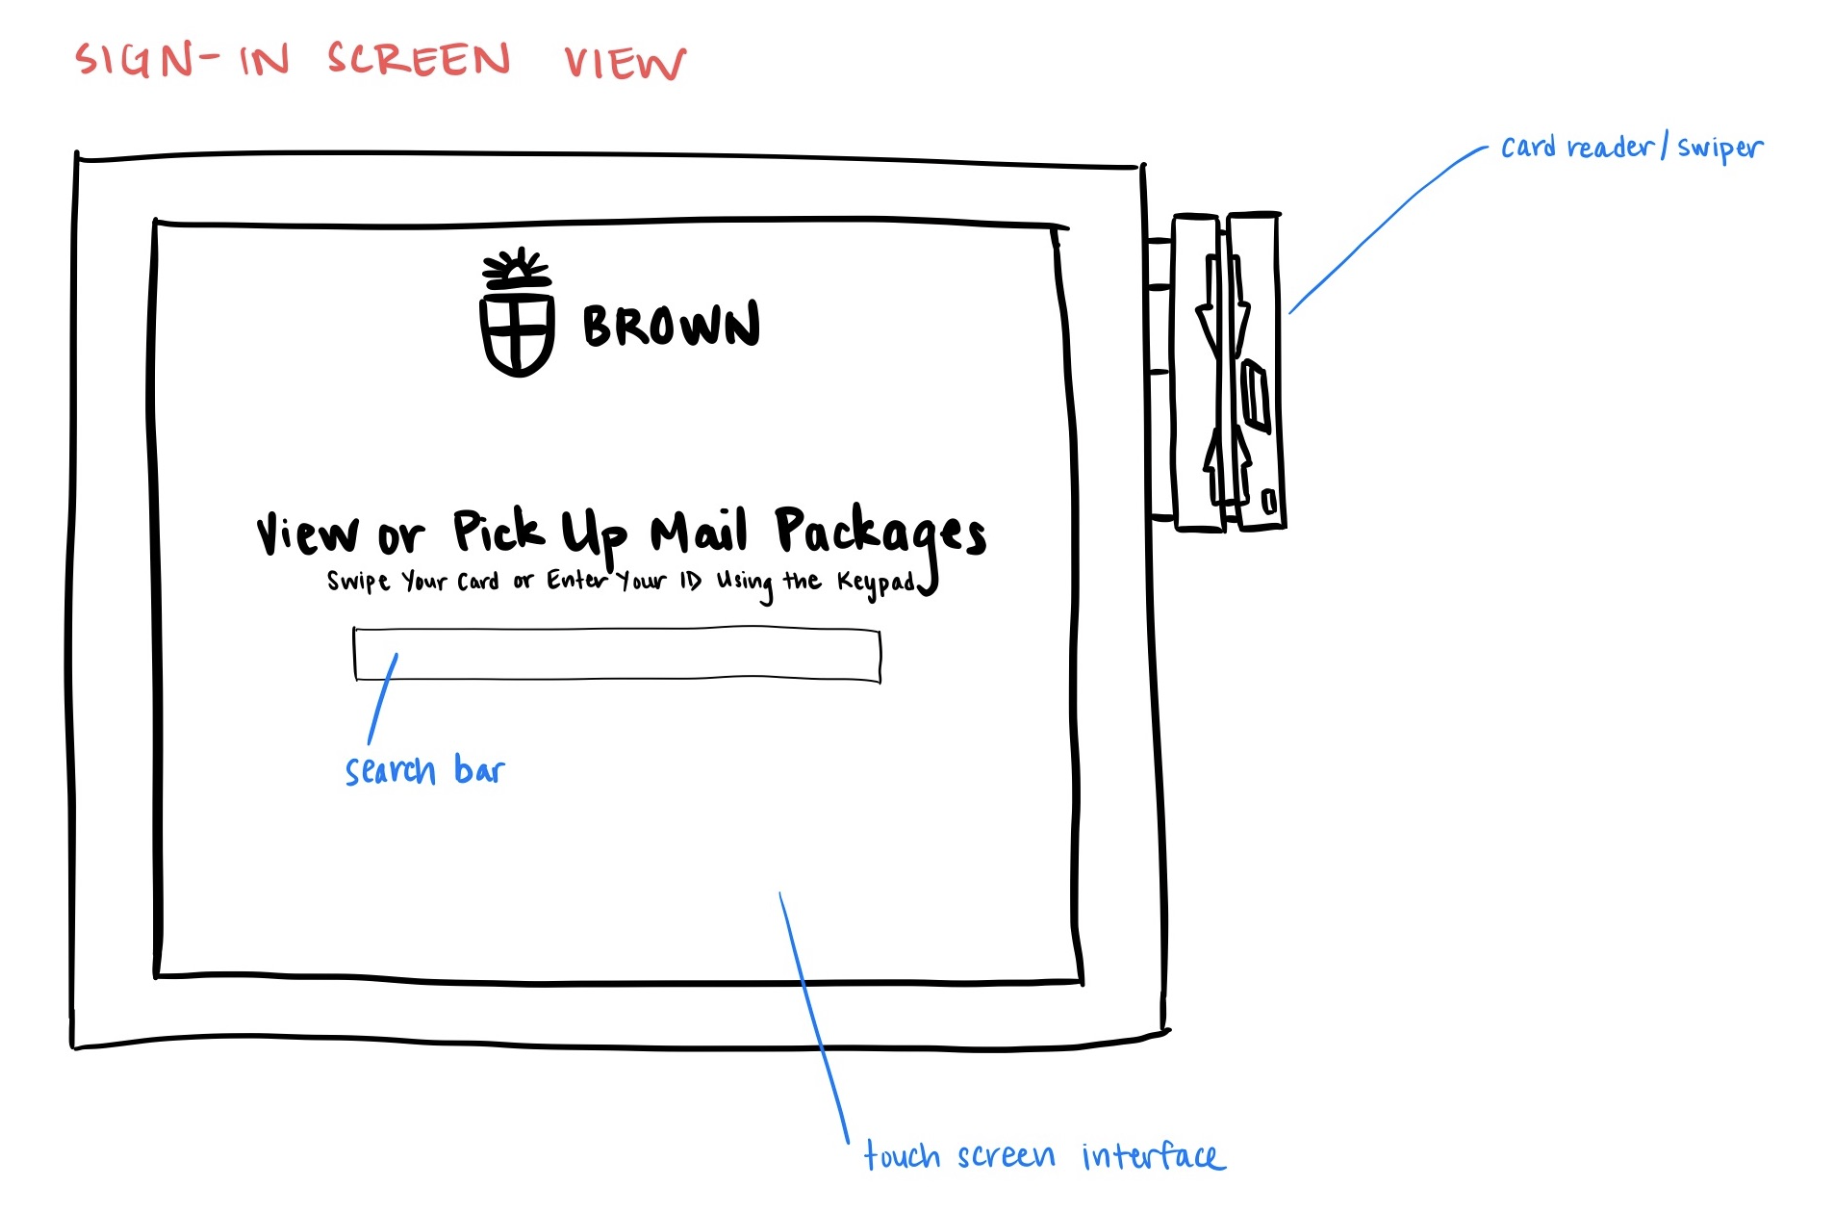 SIGN-IN SCREEN VIEW
card reader/swiper
BROWN
View or Pick Up Mail Packages
Swipe Your Card or Enter Your ID Using the Keypad
search bar
touch screen interface